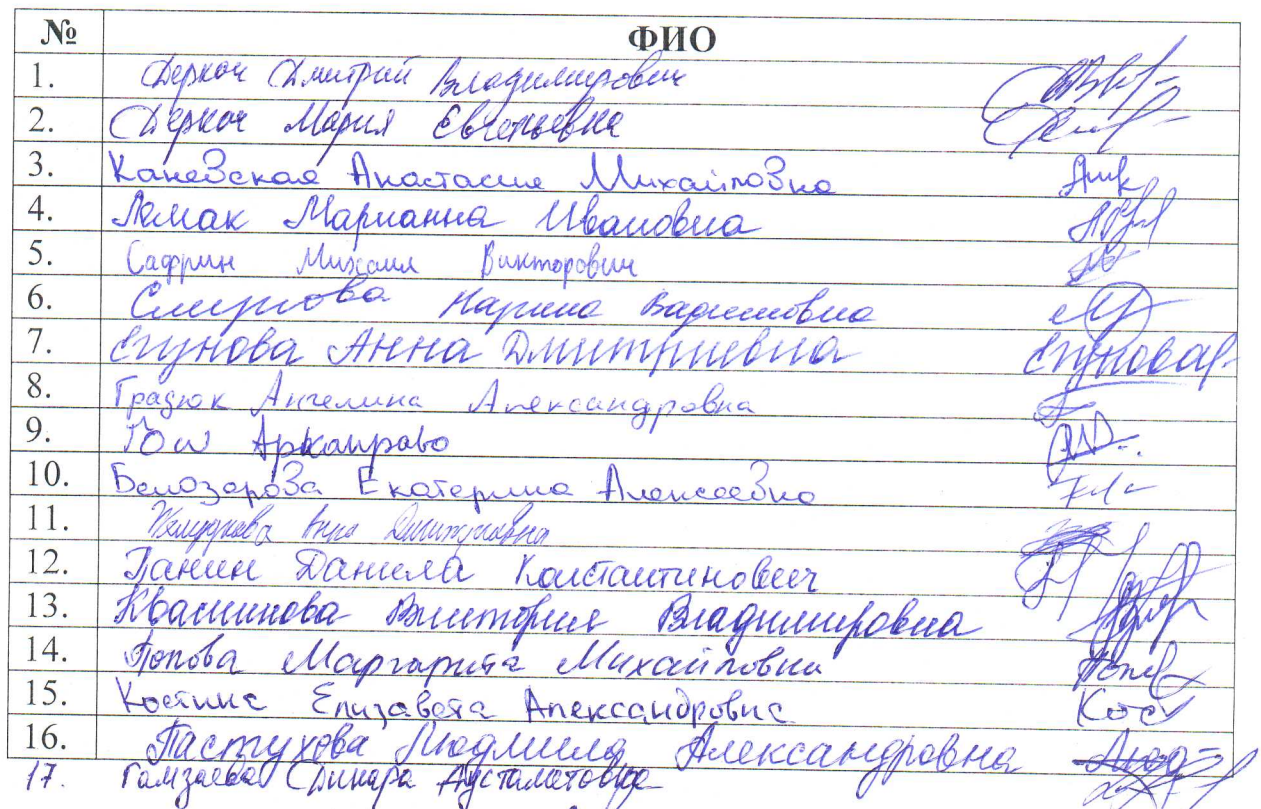 № ФИО
1. Деркач Дмитрий Владимирович
2. Деркач Мария Евгеньевна
3. Каневская Анастасия Михайловна
4. Лемак Марианна Ивановна
5. Сафрин Михаил Викторович
6. Смирнова Карина Вадимовна
7. Егунова Анна Дмитриевна Егунова
8. Градюк Ангелина Александровна
9. Рой Аркаправо
10. Белозерова Екатерина Алексеевна
11. Вера Дмитриевна
12. Панин Данила Константинович
13. Квашнинова Виктория Владимировна
14. Попова Маргарита Михайловна
15. Костина Елизавета Александровна Кос
16. Пастухова Людмила Александровна
17. Гамзаева Динара